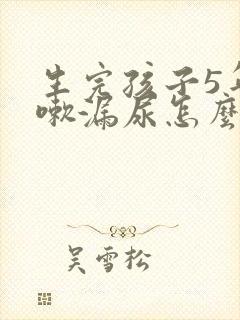 生完孩子5年
嗽漏尿怎麼
吴雪松